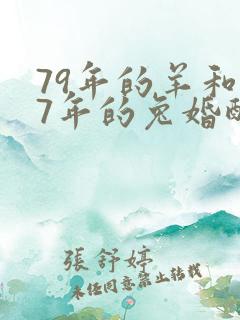 79年的羊和
7年的兔婚配
張舒婷
未经同意禁止转载